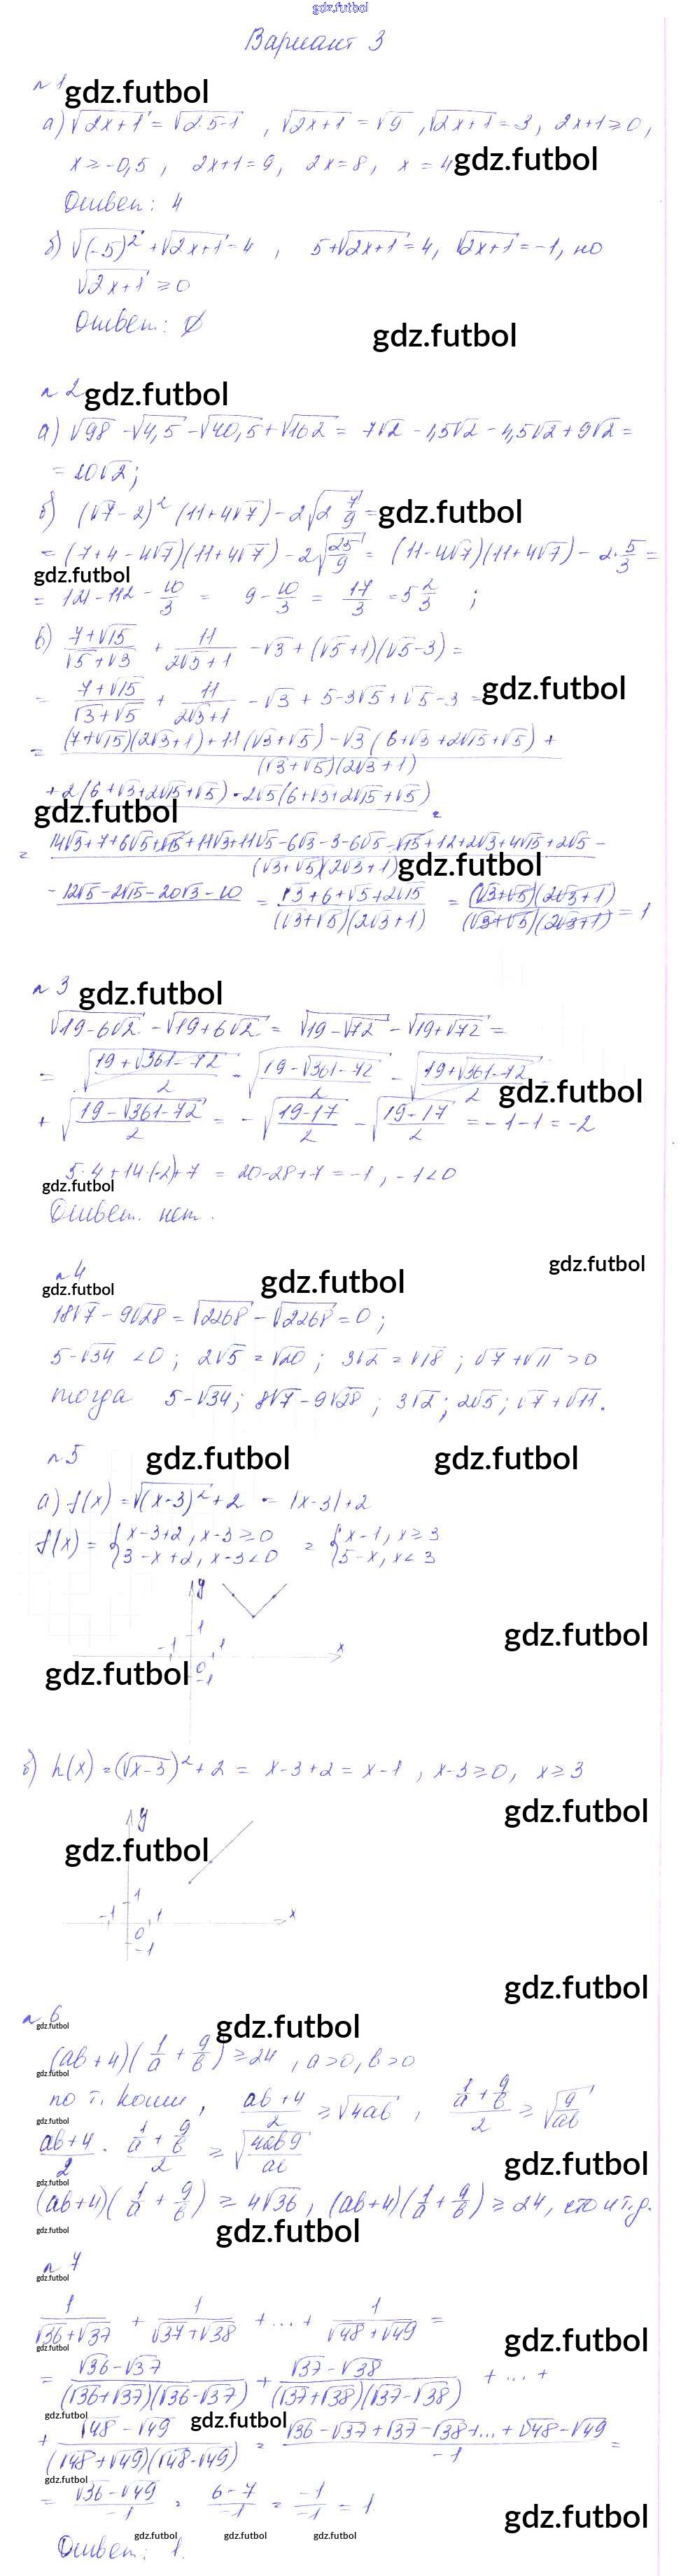 gdz.futbol
Вариант 3
n 1 gdz.futbol
а) √(2x+1) = √(2·5-1), √(2x+1) = √9, √(2x+1) = 3, 2x+1 ≥ 0,
x ≥ -0,5, 2x+1=9, 2x=8, x = 4 gdz.futbol
Ответ: 4
б) √((-5)²) + √(2x+1) = 4, 5+√(2x+1) = 4, √(2x+1) = -1, но
√(2x+1) ≥ 0
Ответ: ∅
gdz.futbol
n 2 gdz.futbol
а) √98 - √4,5 - √40,5 + √162 = 7√2 - 1,5√2 - 4,5√2 + 9√2 =
= 10√2;
б) (√7-2)² (11+4√7) - 2√(2 7/9) = gdz.futbol
= (7+4-4√7)(11+4√7) - 2√(25/9) = (11-4√7)(11+4√7) - 2·5/3 =
gdz.futbol
= 121-112 - 10/3 = 9 - 10/3 = 17/3 = 5 2/3;
в) (7+√15)/(√5+√3) + 11/(2√3+1) - √3 + (√5+1)(√5-3) =
= (7+√15)/(√3+√5) + 11/(2√3+1) - √3 + 5-3√5+√5-3 = gdz.futbol
= ((7+√15)(2√3+1)+11(√3+√5)-√3(6+√3+2√15+√5) +
(√3+√5)(2√3+1)
+2(6+√3+2√15+√5)-2√5(6+√3+2√15+√5)
gdz.futbol =
= 14√3+7+6√5+√15+11√3+11√5-6√3-3-6√5-√15+12+2√3+4√15+2√5-
(√3+√5)(2√3+1) gdz.futbol
-12√5-2√15-20√3-10 = (√3+6+√5+2√15)/((√3+√5)(2√3+1)) = ((√3+√5)(2√3+1))/((√3+√5)(2√3+1)) = 1
n 3 gdz.futbol
√(19-6√2) - √(19+6√2) = √(19-√72) - √(19+√72) =
= √((19+√(361-72))/2) - √((19-√(361-72))/2) - √((19+√(361-72))/2)
gdz.futbol
+ √((19-√(361-72))/2) = -√((19-17)/2) - √((19-17)/2) = -1-1 = -2
5·4+14·(-2)+7 = 20-28+7 = -1, -1<0
gdz.futbol
Ответ: нет.
gdz.futbol
n 4
gdz.futbol gdz.futbol
18√7 - 9√28 = √2268 - √2268 = 0;
5-√34 <0; 2√5 = √20; 3√2 = √18; √7+√11 >0
тогда 5-√34; 8√7-9√28; 3√2; 2√5; √7+√11.
n 5 gdz.futbol gdz.futbol
а) f(x) = √((x-3)²)+2 = |x-3|+2
f(x) = { x-3+2, x-3≥0 = { x-1, x≥3
3-x+2, x-3<0 5-x, x<3
y
1
-1 1 x
gdz.futbol
0
gdz.futbol -1
б) h(x) = (√(x-3))²+2 = x-3+2 = x-1, x-3≥0, x≥3
gdz.futbol
y
gdz.futbol
1
-1 1 x
0
-1
gdz.futbol
n 6
gdz.futbol gdz.futbol
(ab+4)(1/a + 9/b) ≥ 24, a>0, b>0
gdz.futbol
по т. Коши, (ab+4)/2 ≥ √(4ab), (1/a + 9/b)/2 ≥ √(9/ab)
gdz.futbol
(ab+4)/2 · (1/a + 9/b)/2 ≥ √(4ab9/ab)
gdz.futbol
gdz.futbol
(ab+4)(1/a + 9/b) ≥ 4√36, (ab+4)(1/a + 9/b) ≥ 24, что и т.д.
gdz.futbol gdz.futbol
n 7
gdz.futbol
1/(√36+√37) + 1/(√37+√38) + ... + 1/(√48+√49) =
gdz.futbol gdz.futbol
= (√36-√37)/((√36+√37)(√36-√37)) + (√37-√38)/((√37+√38)(√37-√38)) + ... +
gdz.futbol gdz.futbol
+ (√48-√49)/((√48+√49)(√48-√49)) = (√36-√37+√37-√38+...+√48-√49)/(-1) =
gdz.futbol
= (√36-√49)/(-1) = (6-7)/(-1) = (-1)/(-1) = 1
gdz.futbol
gdz.futbol gdz.futbol gdz.futbol
Ответ: 1.